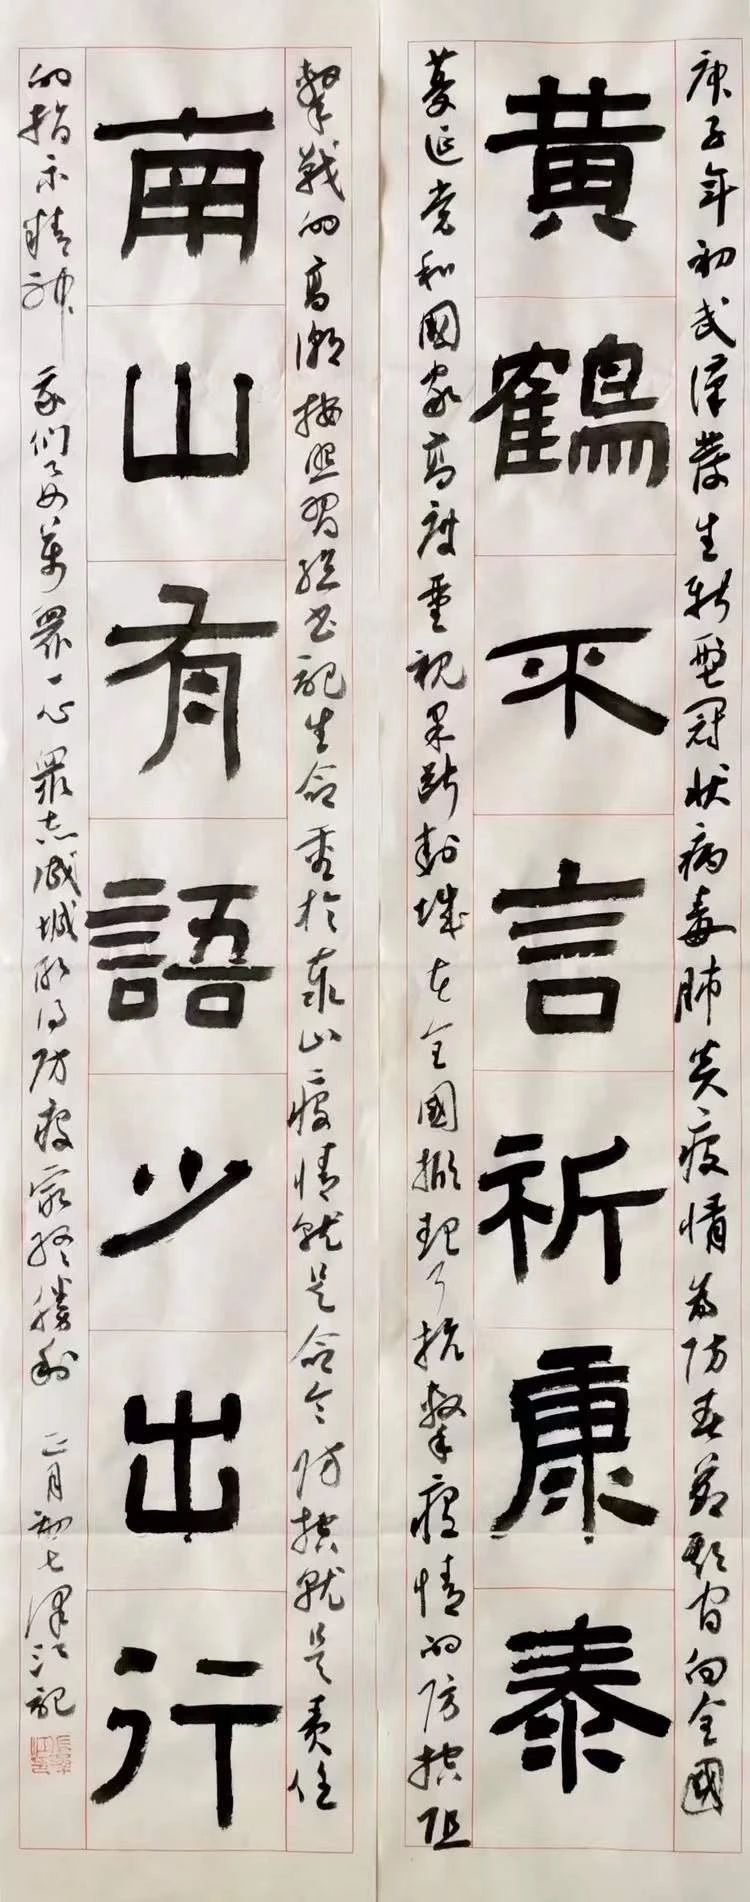 庚子年初武漢發生新型冠狀病毒肺炎疫情為防春節期间向全國
黃鶴不言祈康泰
蔓延党和國家高度重视果斷封城在全國掀起了抗擊疫情的防控阻
擊戰的高潮按照習總书記生命重於泰山疫情就是命令防控就是责任
南山有語少出行
的指示精神 我們要萬眾一心眾志成城取得防疫最終勝利 正月初七澤江記